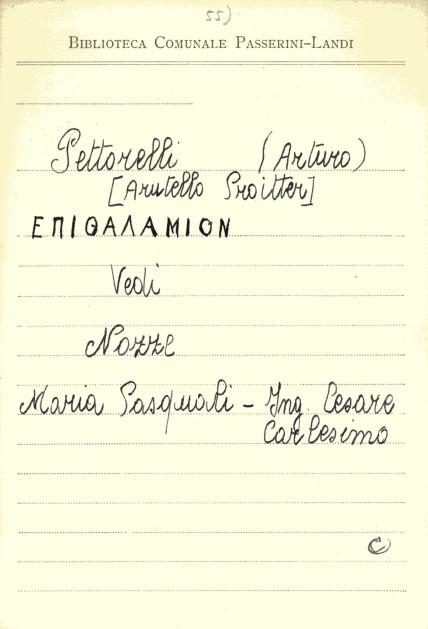 55)
BIBLIOTECA COMUNALE PASSERINI-LANDI
Pettorelli (Arturo)
[Arutello Proitter]
ΕΠΙΘΑΛΑΜΙΟΝ
Vedi
Nozze
Maria Pasquali - Ing. Cesare
Carlesimo
C